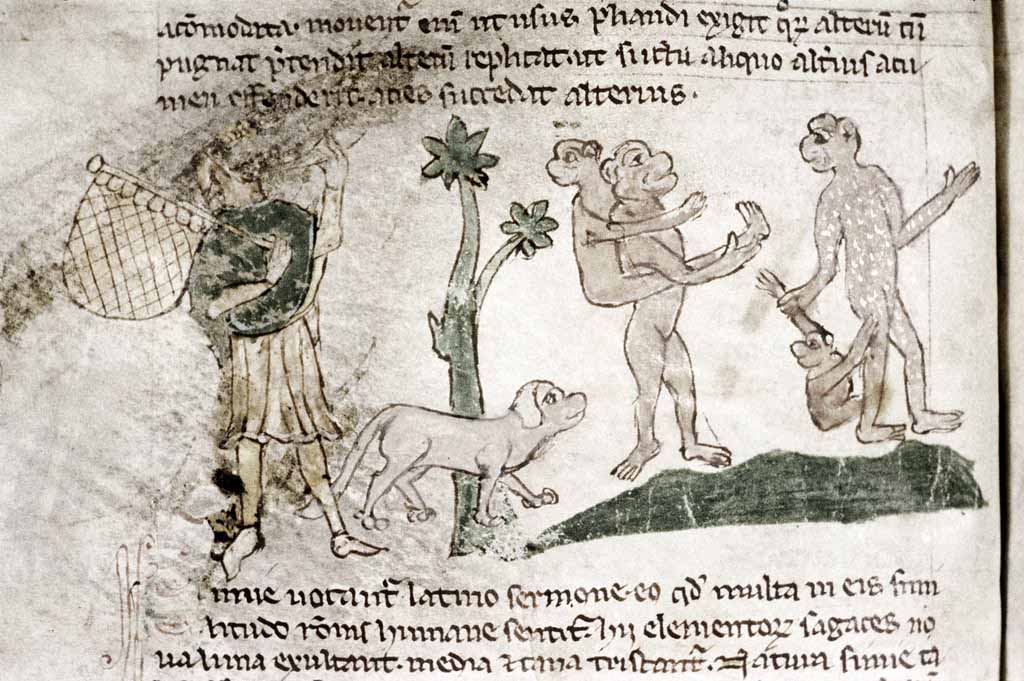 acōmodata. movent᷑ enī ut usus pliandi exigit qꝝ alterū cū
pugnat p̄tendit alterū replicat. ut si ictu aliquo alt᷑ius acu
men offenderit. acies succedat alterius.
imie vocant᷑ latino sermone. eo qd̓ multa in eis simi
litudo rōnis humane sentit᷑. hij elementoꝝ sagaces no
va luna exultant. media ⁊ cava tristant᷑. Natura simie ta